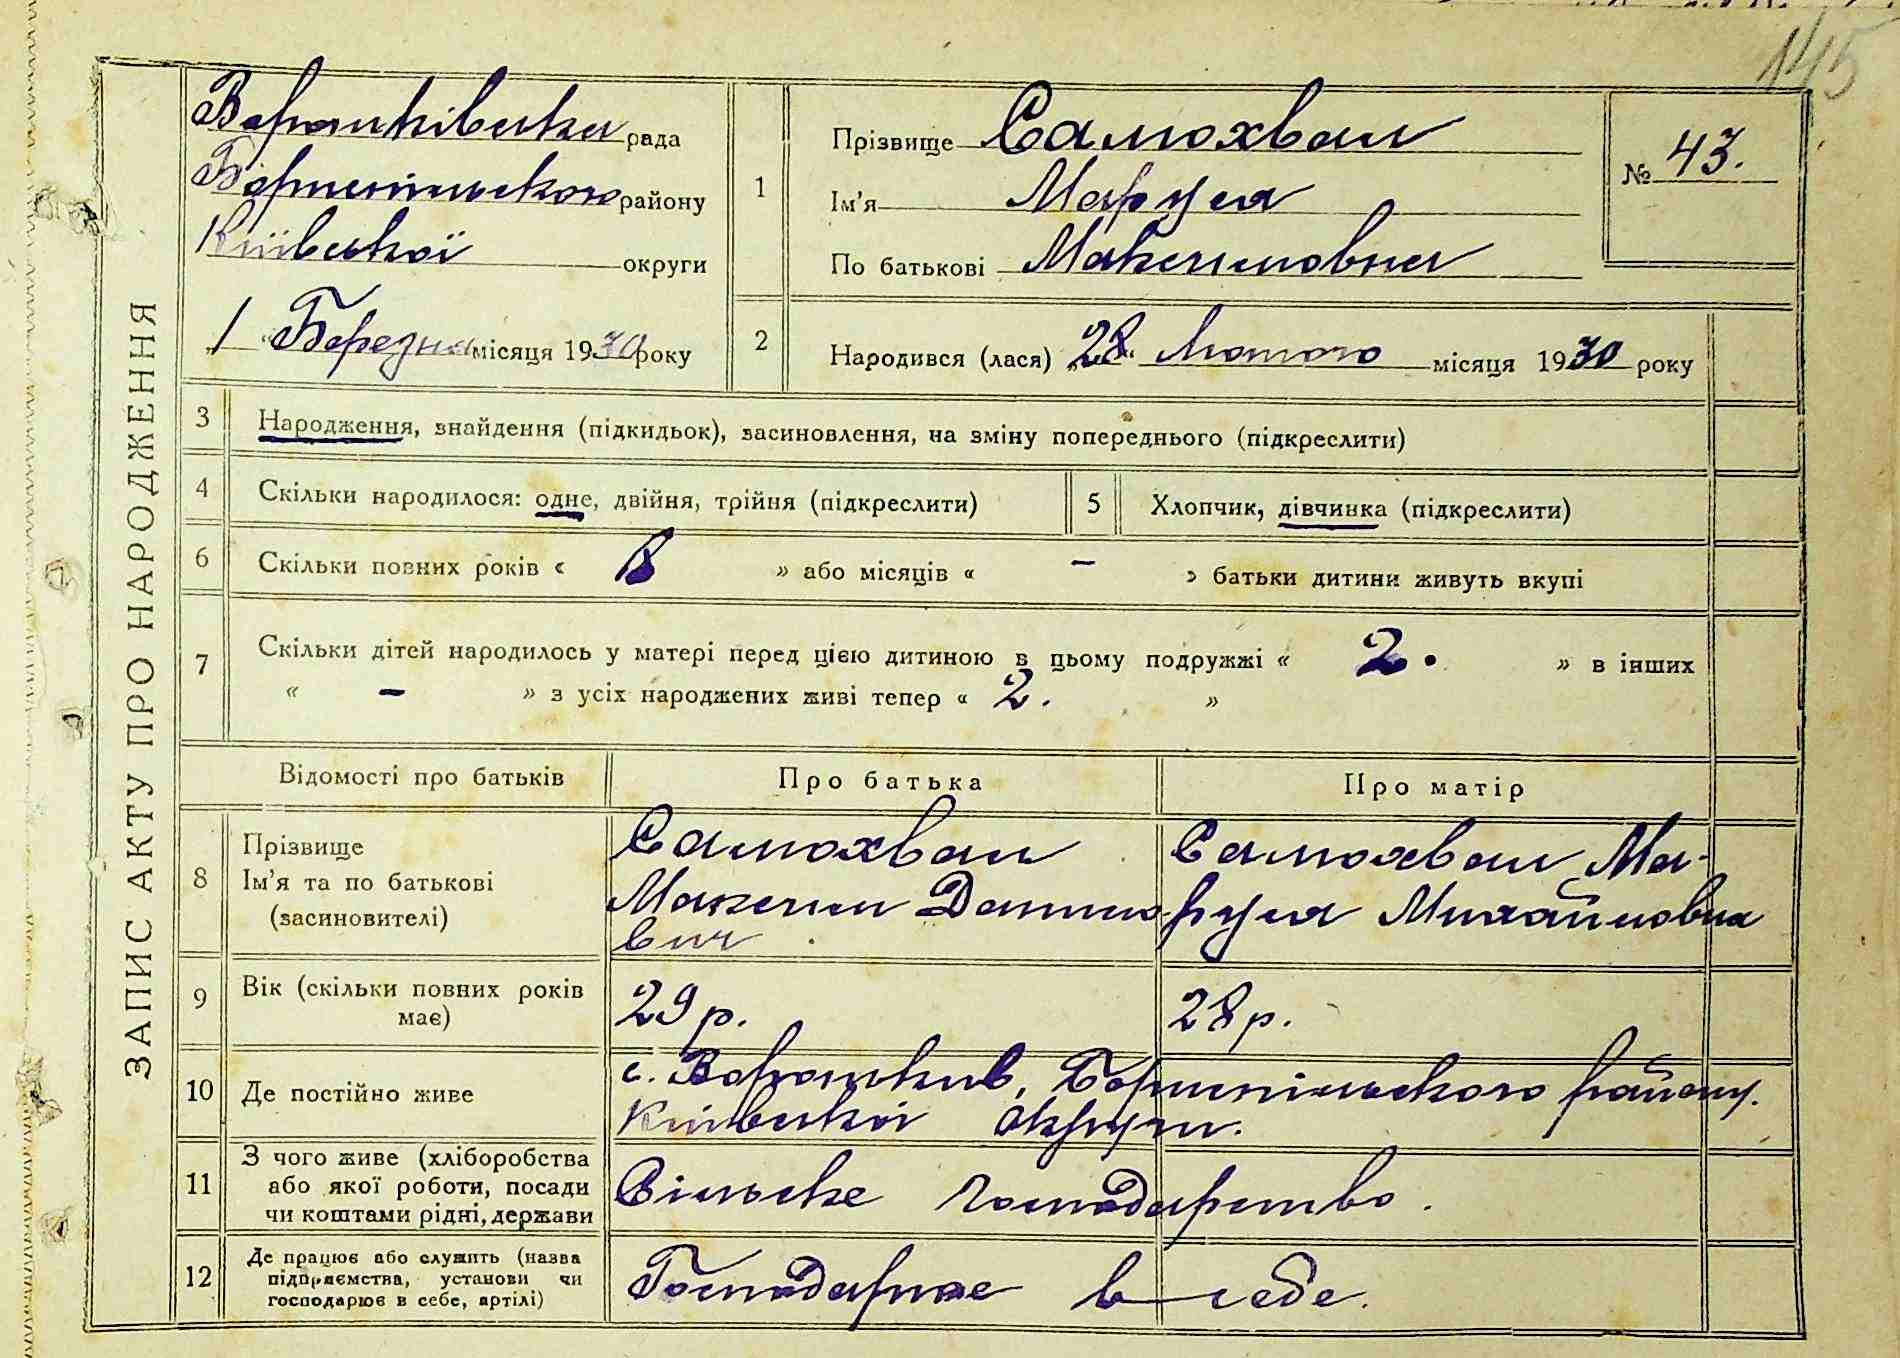 145
ЗАПИС АКТУ ПРО НАРОДЖЕННЯ
Вороньківська рада
Бориспільского району
Київської округи
„1“ Березня місяця 1930 року
1
Прізвище Самохвал
Ім'я Маруся
По батькові Максимовна
№ 43.
2
Народився (лася) „28“ Лютого місяця 1930 року
3 Народження, знайдення (підкидьок), засиновлення, на зміну попереднього (підкреслити)
4 Скільки народилося: одне, двійня, трійня (підкреслити) 5 Хлопчик, дівчинка (підкреслити)
6 Скільки повних років « 8 » або місяців « – » батьки дитини живуть вкупі
7 Скільки дітей народилось у матері перед цією дитиною в цьому подружжі « 2. » в інших
« – » з усіх народжених живі тепер « 2. »
Відомості про батьків Про батька Про матір
8 Прізвище
Ім'я та по батькові
(засиновителі)
Самохвал
Максим Данило
вич
Самохвал Ма-
руся Михайловна
9 Вік (скільки повних років
має)
29 р. 28 р.
10 Де постійно живе
с. Вороньків, Бориспільского району.
Київської округи.
11 З чого живе (хліборобства
або якої роботи, посади
чи коштами рідні, держави
Сільське господарство.
12 Де працює або служить (назва
підприємства, установи чи
господарює в себе, артілі)
Господарює в себе.